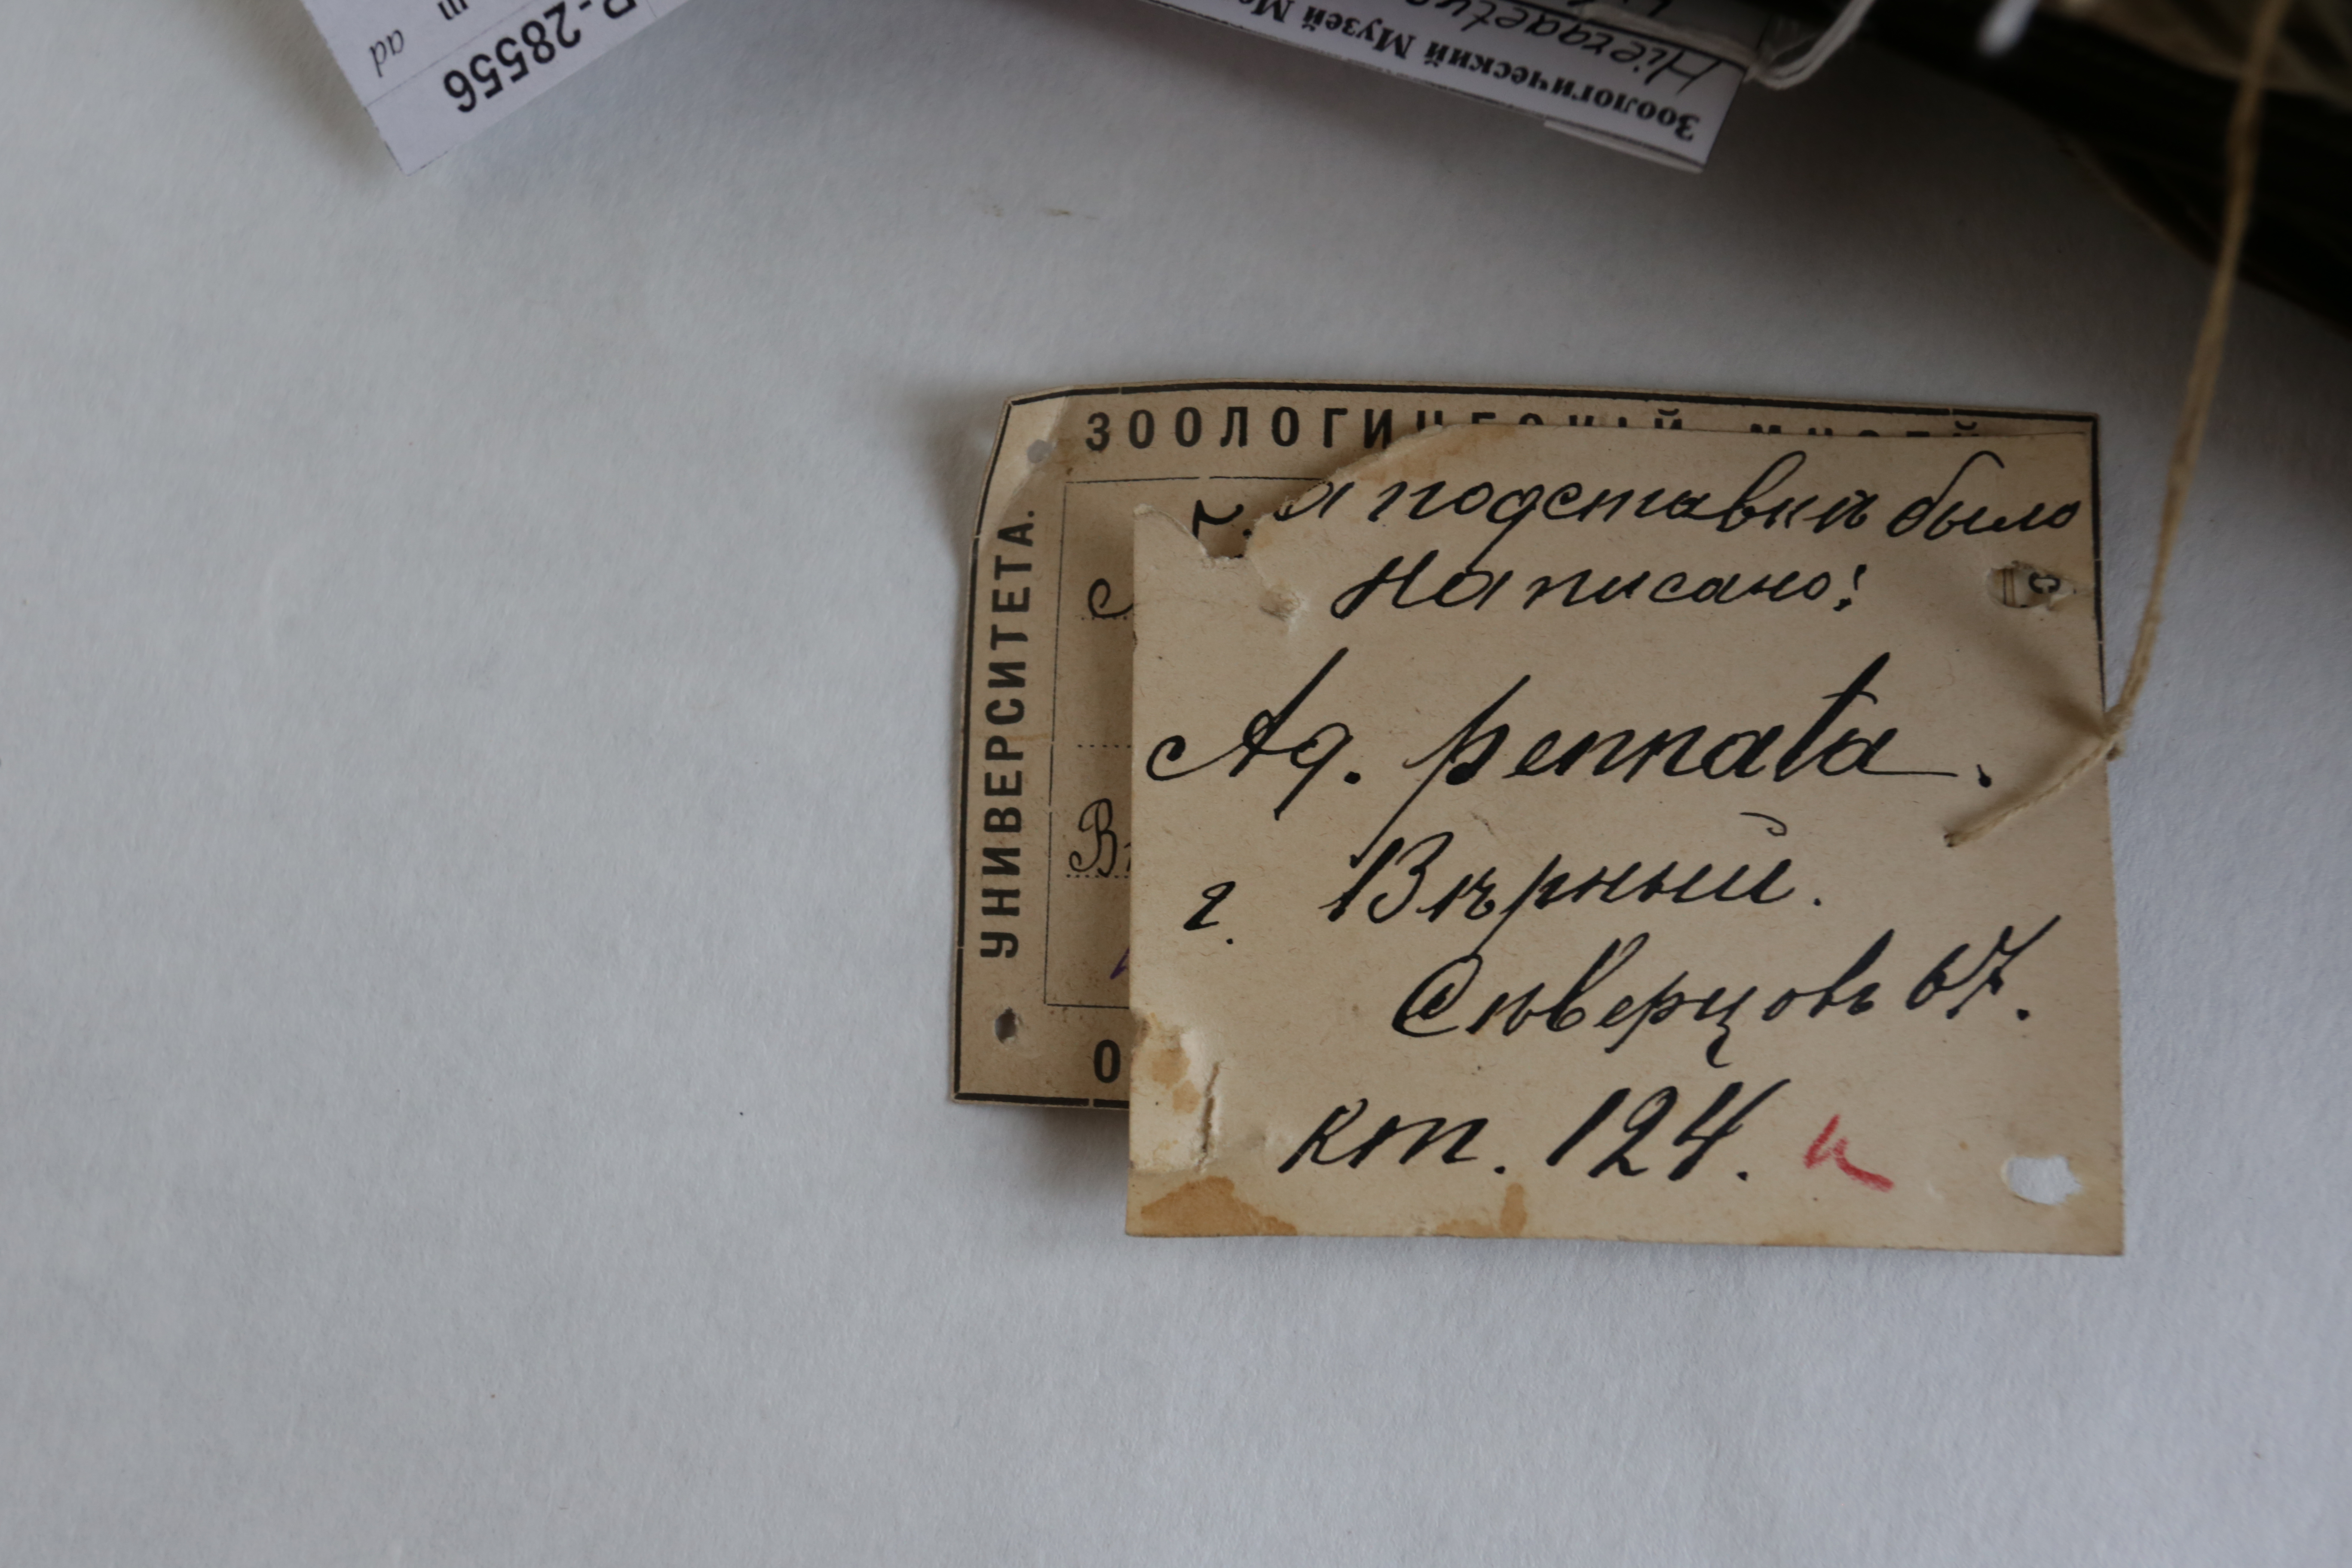 R-28556
ad
Зоологический Музей Мо
Hieraaetus
ЗООЛОГИЧЕСКІЙ МУЗЕЙ
УНИВЕРСИТЕТА.
а подставкѣ было
написано:
Aq. pennata.
г. Вѣрный.
Сѣверцовъ 67.
кт. 124. и